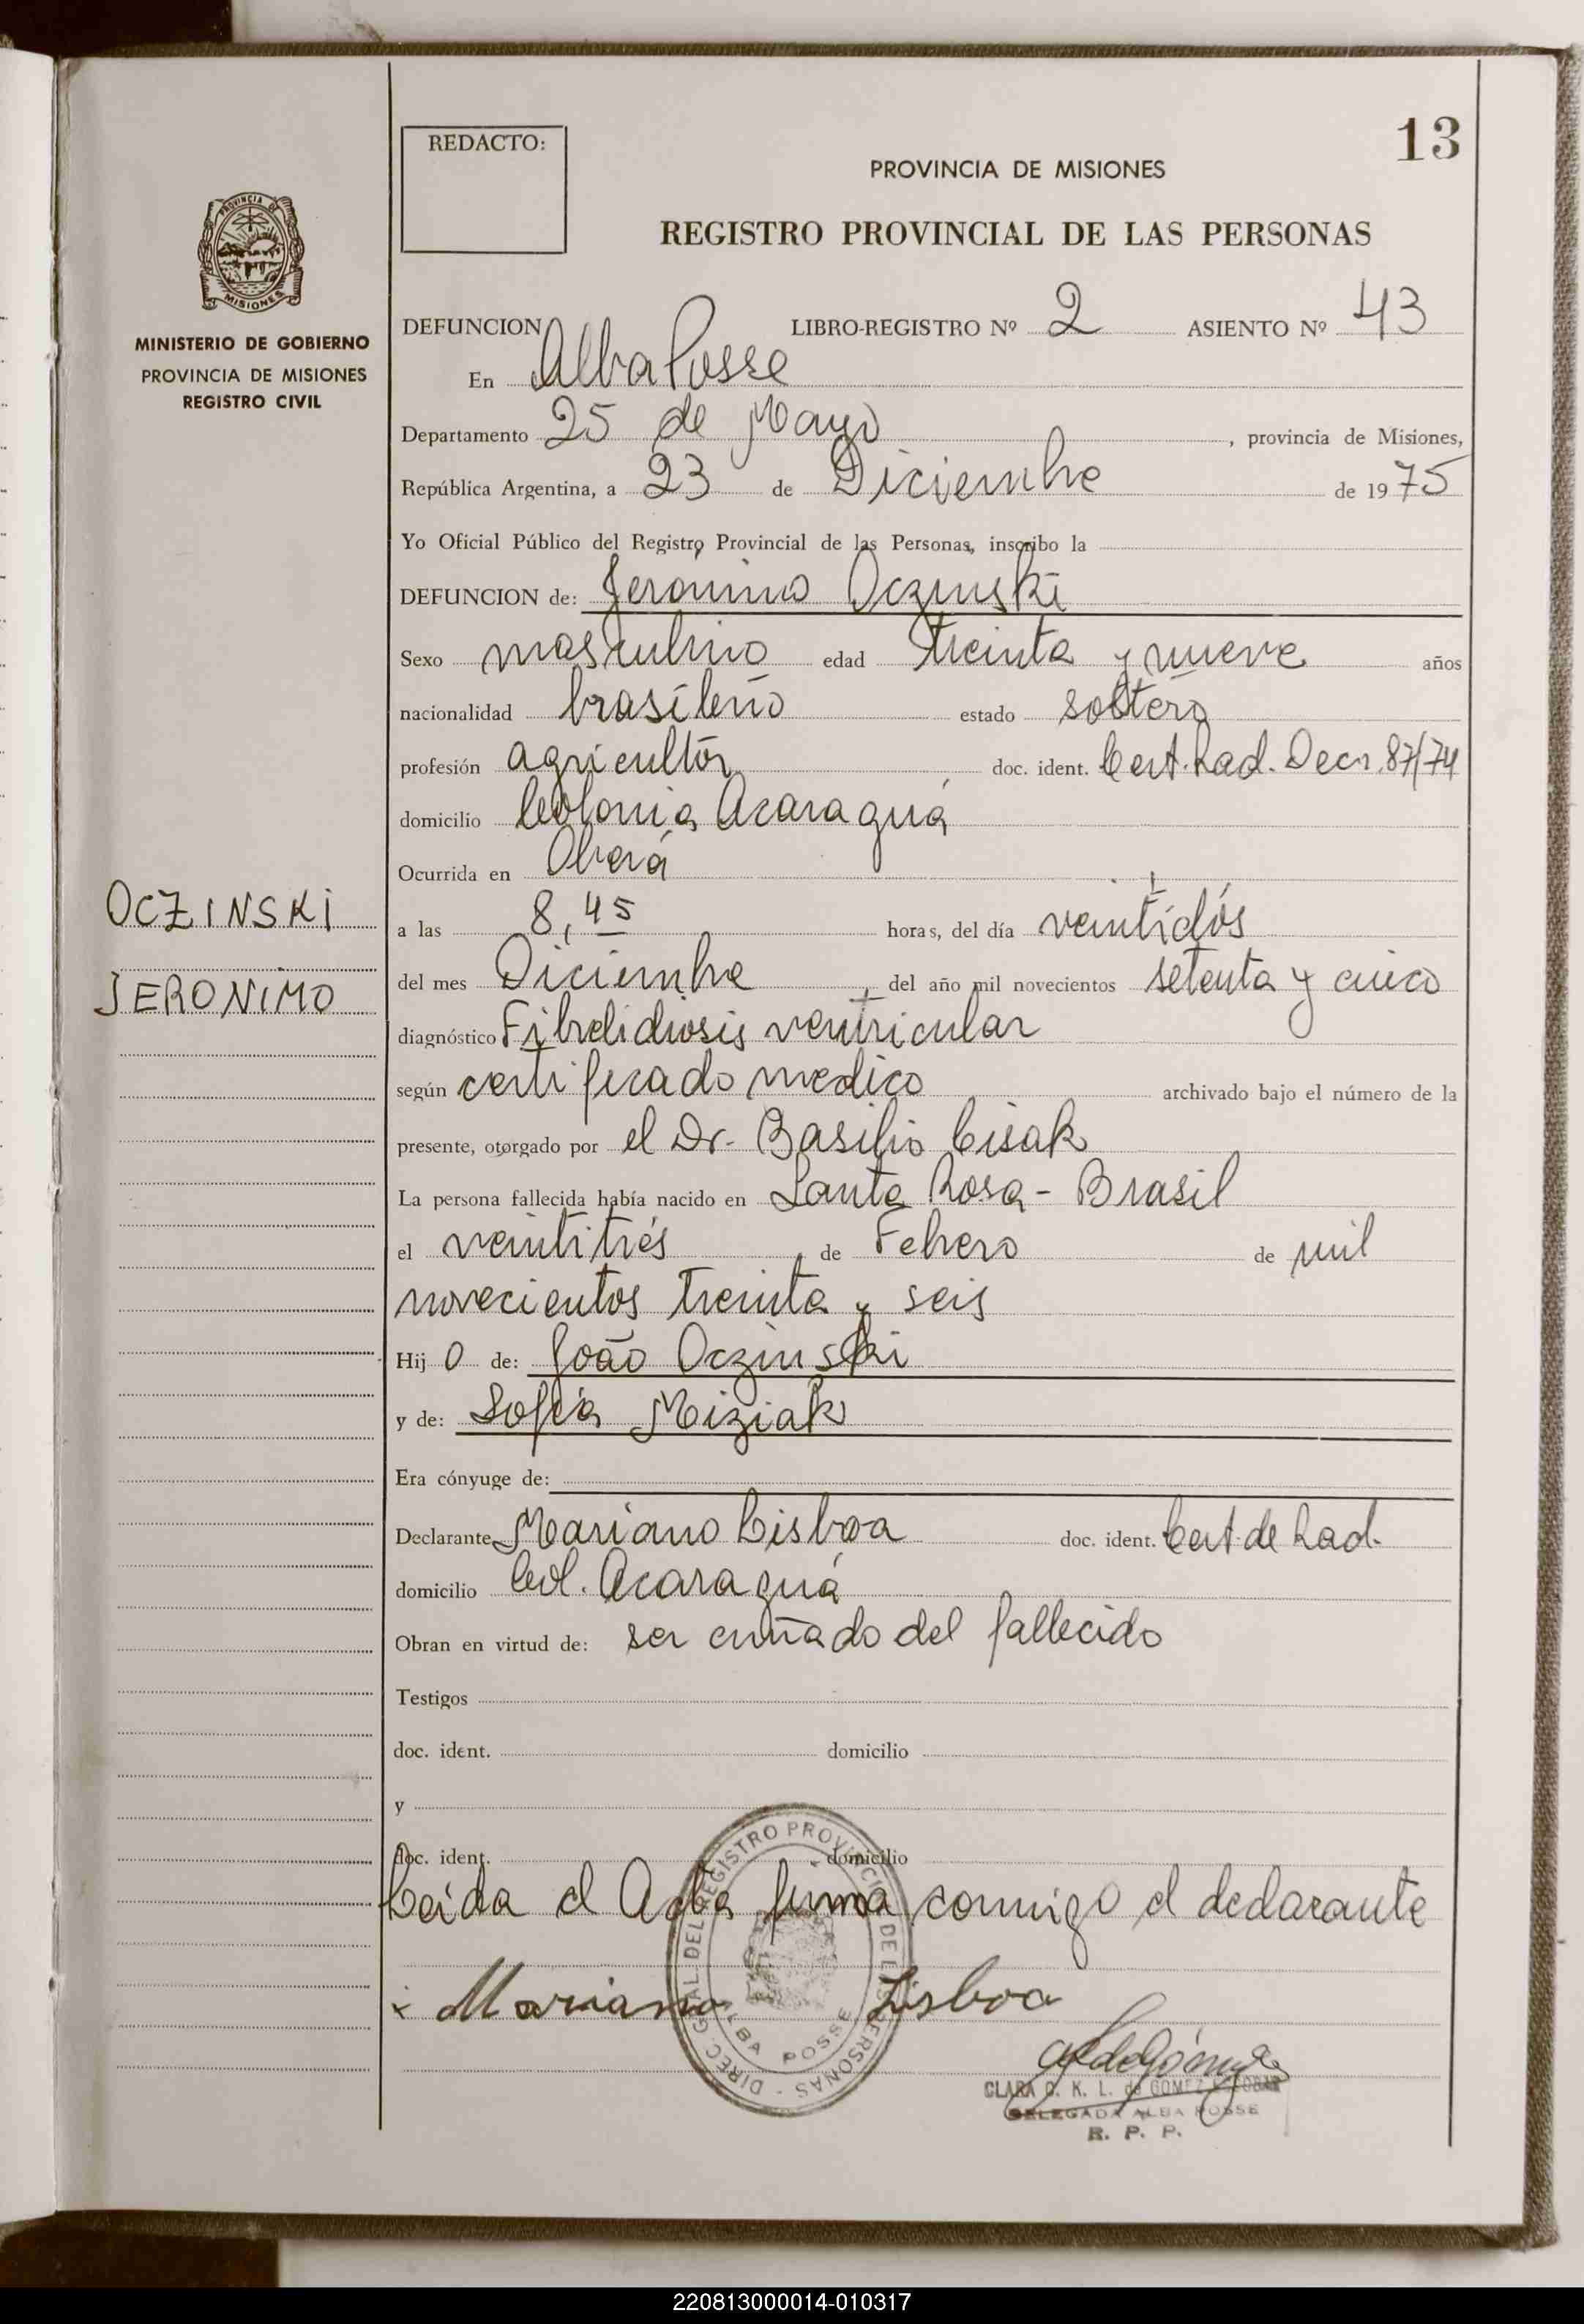 13
REDACTO:
PROVINCIA DE MISIONES
REGISTRO PROVINCIAL DE LAS PERSONAS
PROVINCIA DE
MISIONES
MINISTERIO DE GOBIERNO
PROVINCIA DE MISIONES
REGISTRO CIVIL
DEFUNCION LIBRO-REGISTRO Nº 2 ASIENTO Nº 43
En Alba Posse
Departamento 25 de Mayo, provincia de Misiones,
República Argentina, a 23 de Diciembre de 1975
Yo Oficial Público del Registro Provincial de las Personas, inscribo la
DEFUNCION de: Jeronimo Oczinski
Sexo masculino edad treinta y nueve años
nacionalidad brasileño estado soltero
profesión agricultor doc. ident. Cert. Rad. Decr. 87/74
domicilio Colonia Acaraguá
Ocurrida en Oberá
OCZINSKI
JERONIMO
a las 8,45 horas, del día veintidós
del mes Diciembre, del año mil novecientos setenta y cinco
diagnóstico ventricular
según certificado medico archivado bajo el número de la
presente, otorgado por el Dr. Basilio Cisak
La persona fallecida había nacido en Santa Rosa - Brasil
el veintitrés de Febrero de mil
novecientos treinta y seis
Hijo de: João Oczinski
y de: Sofia Miziak
Era cónyuge de:
Declarante Mariano Lisboa doc. ident. Cert de Rad.
domicilio Col. Acaraguá
Obran en virtud de: ser cuñado del fallecido
Testigos
doc. ident. domicilio
y
doc. ident. domicilio
Leída el Acta firma conmigo el declarante
x Mariano Lisboa
DIREC. GRAL. DEL REGISTRO PROVINCIAL DE LAS PERSONAS -
ALBA POSSE
CLARA O. K. L. de GOMEZ
DELEGADA ALBA POSSE
R. P. P.
220813000014-010317